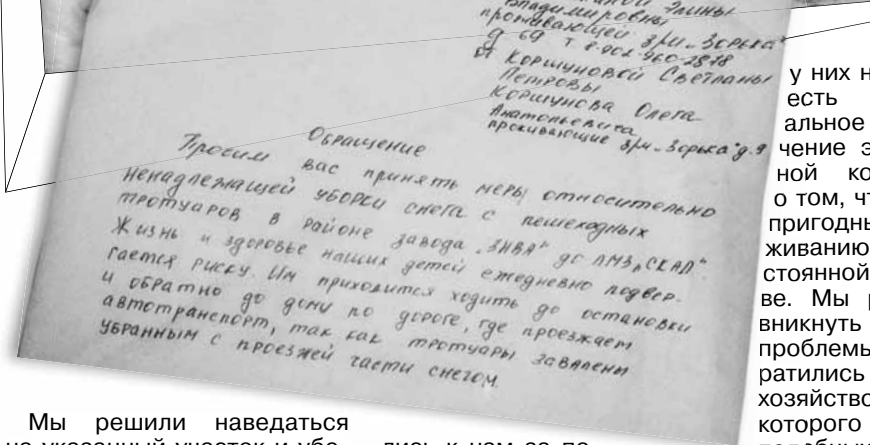 Владимировны
проживающей з/м „Зорька"
д 69 т. 8-902-960-2878
от Коршуновой Светланы
Петровы
Коршунова Олега
Анатольевича
проживающие з/м „Зорька" д.9
Обращение
Просим вас принять меры относительно
ненадлежащей уборки снега с пешеходных
тротуаров в районе завода „ЗНВА" до ЛМЗ „СКАД".
Жизнь и здоровье наших детей ежедневно подвер-
гается риску. Им приходится ходить до остановки
и обратно до дому по дороге, где проезжает
автотранспорт, так как тротуары завалены
убранным с проезжей части снегом.
Мы решили наведаться
на указанный участок и убе
дись к нам за по
у них н
есть
альное
чение э
ной ко
о том, чт
пригодны
живанию
стоянной
ве. Мы р
вникнуть
проблемы
ратились
хозяйство
которого
подобных